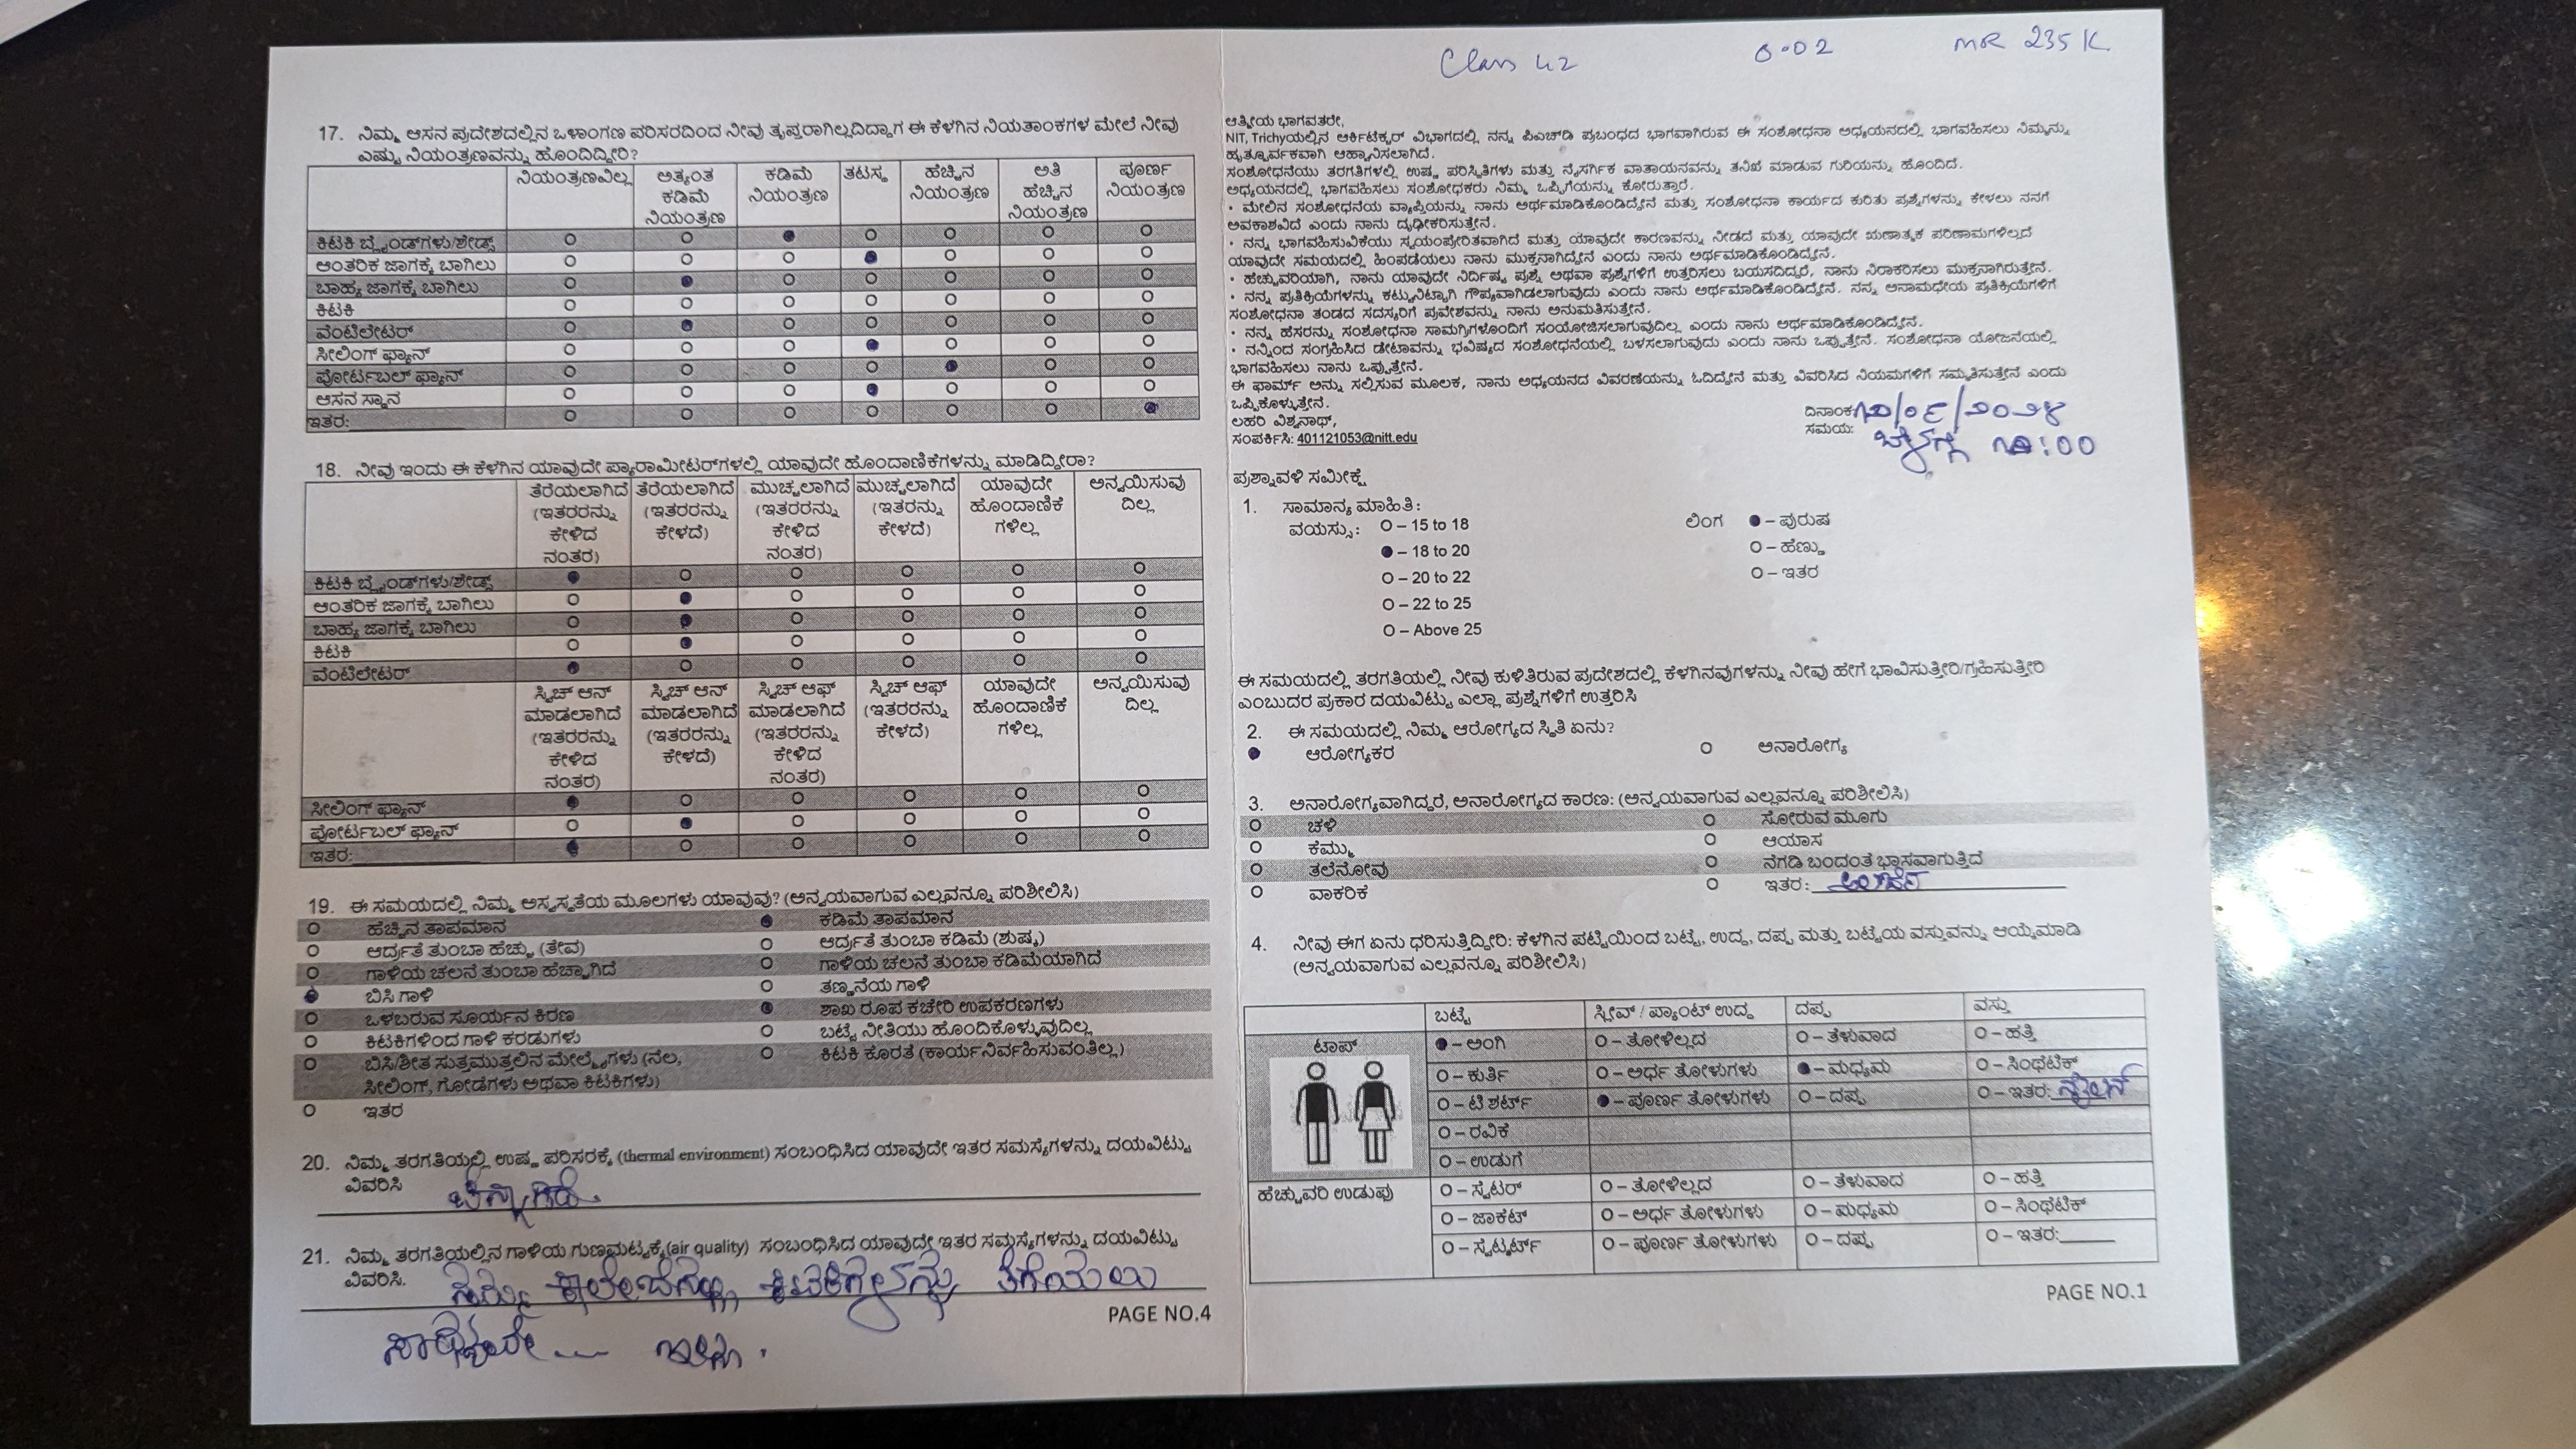 17. ನಿಮ್ಮ ಆಸನ ಪ್ರದೇಶದಲ್ಲಿನ ಒಳಾಂಗಣ ಪರಿಸರದಿಂದ ನೀವು ತೃಪ್ತರಾಗಿಲ್ಲದಿದ್ದಾಗ ಈ ಕೆಳಗಿನ ನಿಯತಾಂಕಗಳ ಮೇಲೆ ನೀವು
ಎಷ್ಟು ನಿಯಂತ್ರಣವನ್ನು ಹೊಂದಿದ್ದೀರಿ?
ನಿಯಂತ್ರಣವಿಲ್ಲ ಅತ್ಯಂತ ಕಡಿಮೆ ನಿಯಂತ್ರಣ ಕಡಿಮೆ ನಿಯಂತ್ರಣ ತಟಸ್ಥ ಹೆಚ್ಚಿನ ನಿಯಂತ್ರಣ ಅತಿ ಹೆಚ್ಚಿನ ನಿಯಂತ್ರಣ ಪೂರ್ಣ ನಿಯಂತ್ರಣ
ಕಿಟಕಿ ಬ್ಲೈಂಡ್‌ಗಳು/ಶೇಡ್ಸ್
ಆಂತರಿಕ ಜಾಗಕ್ಕೆ ಬಾಗಿಲು
ಬಾಹ್ಯ ಜಾಗಕ್ಕೆ ಬಾಗಿಲು
ಕಿಟಕಿ
ವೆಂಟಿಲೇಟರ್
ಸೀಲಿಂಗ್ ಫ್ಯಾನ್
ಪೋರ್ಟಬಲ್ ಫ್ಯಾನ್
ಆಸನ ಸ್ಥಾನ
ಇತರ:
18. ನೀವು ಇಂದು ಈ ಕೆಳಗಿನ ಯಾವುದೇ ಪ್ಯಾರಾಮೀಟರ್‌ಗಳಲ್ಲಿ ಯಾವುದೇ ಹೊಂದಾಣಿಕೆಗಳನ್ನು ಮಾಡಿದ್ದೀರಾ?
ತೆರೆಯಲಾಗಿದೆ (ಇತರರನ್ನು ಕೇಳಿದ ನಂತರ) ತೆರೆಯಲಾಗಿದೆ (ಇತರರನ್ನು ಕೇಳದೆ) ಮುಚ್ಚಲಾಗಿದೆ (ಇತರರನ್ನು ಕೇಳಿದ ನಂತರ) ಮುಚ್ಚಲಾಗಿದೆ (ಇತರರನ್ನು ಕೇಳದೆ) ಯಾವುದೇ ಹೊಂದಾಣಿಕೆ ಗಳಿಲ್ಲ ಅನ್ವಯಿಸುವು ದಿಲ್ಲ
ಕಿಟಕಿ ಬ್ಲೈಂಡ್‌ಗಳು/ಶೇಡ್ಸ್
ಆಂತರಿಕ ಜಾಗಕ್ಕೆ ಬಾಗಿಲು
ಬಾಹ್ಯ ಜಾಗಕ್ಕೆ ಬಾಗಿಲು
ಕಿಟಕಿ
ವೆಂಟಿಲೇಟರ್
ಸ್ವಿಚ್ ಆನ್ ಮಾಡಲಾಗಿದೆ (ಇತರರನ್ನು ಕೇಳಿದ ನಂತರ) ಸ್ವಿಚ್ ಆನ್ ಮಾಡಲಾಗಿದೆ (ಇತರರನ್ನು ಕೇಳದೆ) ಸ್ವಿಚ್ ಆಫ್ ಮಾಡಲಾಗಿದೆ (ಇತರರನ್ನು ಕೇಳಿದ ನಂತರ) ಸ್ವಿಚ್ ಆಫ್ (ಇತರರನ್ನು ಕೇಳದೆ) ಯಾವುದೇ ಹೊಂದಾಣಿಕೆ ಗಳಿಲ್ಲ ಅನ್ವಯಿಸುವು ದಿಲ್ಲ
ಸೀಲಿಂಗ್ ಫ್ಯಾನ್
ಪೋರ್ಟಬಲ್ ಫ್ಯಾನ್
ಇತರ:
19. ಈ ಸಮಯದಲ್ಲಿ ನಿಮ್ಮ ಅಸ್ವಸ್ಥತೆಯ ಮೂಲಗಳು ಯಾವುವು? (ಅನ್ವಯವಾಗುವ ಎಲ್ಲವನ್ನೂ ಪರಿಶೀಲಿಸಿ)
ಹೆಚ್ಚಿನ ತಾಪಮಾನ ಕಡಿಮೆ ತಾಪಮಾನ
ಆರ್ದ್ರತೆ ತುಂಬಾ ಹೆಚ್ಚು (ತೇವ) ಆರ್ದ್ರತೆ ತುಂಬಾ ಕಡಿಮೆ (ಶುಷ್ಕ)
ಗಾಳಿಯ ಚಲನೆ ತುಂಬಾ ಹೆಚ್ಚಾಗಿದೆ ಗಾಳಿಯ ಚಲನೆ ತುಂಬಾ ಕಡಿಮೆಯಾಗಿದೆ
ಬಿಸಿ ಗಾಳಿ ತಣ್ಣನೆಯ ಗಾಳಿ
ಒಳಬರುವ ಸೂರ್ಯನ ಕಿರಣ ಶಾಖ ರೂಪ ಕಚೇರಿ ಉಪಕರಣಗಳು
ಕಿಟಕಿಗಳಿಂದ ಗಾಳಿ ಕರಡುಗಳು ಬಟ್ಟೆ ನೀತಿಯು ಹೊಂದಿಕೊಳ್ಳುವುದಿಲ್ಲ
ಬಿಸಿ/ಶೀತ ಸುತ್ತಮುತ್ತಲಿನ ಮೇಲ್ಮೈಗಳು (ನೆಲ, ಕಿಟಕಿ ಕೊರತೆ (ಕಾರ್ಯನಿರ್ವಹಿಸುವಂತಿಲ್ಲ)
ಸೀಲಿಂಗ್, ಗೋಡೆಗಳು ಅಥವಾ ಕಿಟಕಿಗಳು)
ಇತರ
20. ನಿಮ್ಮ ತರಗತಿಯಲ್ಲಿ ಉಷ್ಣ ಪರಿಸರಕ್ಕೆ (thermal environment) ಸಂಬಂಧಿಸಿದ ಯಾವುದೇ ಇತರ ಸಮಸ್ಯೆಗಳನ್ನು ದಯವಿಟ್ಟು
ವಿವರಿಸಿ ಚೆನ್ನಾಗಿದೆ.
21. ನಿಮ್ಮ ತರಗತಿಯಲ್ಲಿನ ಗಾಳಿಯ ಗುಣಮಟ್ಟಕ್ಕೆ(air quality) ಸಂಬಂಧಿಸಿದ ಯಾವುದೇ ಇತರ ಸಮಸ್ಯೆಗಳನ್ನು ದಯವಿಟ್ಟು
ವಿವರಿಸಿ. ನಮ್ಮ ಕಾಲೇಜಿನಲ್ಲಿ ಕಿಟಕಿಗಳನ್ನು ತೆಗೆಯಲು
PAGE NO.4
ಇಲ್ಲ.
Class 42 0.02 MR 235 K
ಆತ್ಮೀಯ ಭಾಗವತರೇ,
NIT, Trichyಯಲ್ಲಿನ ಆರ್ಕಿಟೆಕ್ಚರ್ ವಿಭಾಗದಲ್ಲಿ ನನ್ನ ಪಿಎಚ್‌ಡಿ ಪ್ರಬಂಧದ ಭಾಗವಾಗಿರುವ ಈ ಸಂಶೋಧನಾ ಅಧ್ಯಯನದಲ್ಲಿ ಭಾಗವಹಿಸಲು ನಿಮ್ಮನ್ನು
ಹೃತ್ಪೂರ್ವಕವಾಗಿ ಆಹ್ವಾನಿಸಲಾಗಿದೆ.
ಸಂಶೋಧನೆಯು ತರಗತಿಗಳಲ್ಲಿ ಉಷ್ಣ ಪರಿಸ್ಥಿತಿಗಳು ಮತ್ತು ನೈಸರ್ಗಿಕ ವಾತಾಯನವನ್ನು ತನಿಖೆ ಮಾಡುವ ಗುರಿಯನ್ನು ಹೊಂದಿದೆ.
ಅಧ್ಯಯನದಲ್ಲಿ ಭಾಗವಹಿಸಲು ಸಂಶೋಧಕರು ನಿಮ್ಮ ಒಪ್ಪಿಗೆಯನ್ನು ಕೋರುತ್ತಾರೆ.
• ಮೇಲಿನ ಸಂಶೋಧನೆಯ ವ್ಯಾಪ್ತಿಯನ್ನು ನಾನು ಅರ್ಥಮಾಡಿಕೊಂಡಿದ್ದೇನೆ ಮತ್ತು ಸಂಶೋಧನಾ ಕಾರ್ಯದ ಕುರಿತು ಪ್ರಶ್ನೆಗಳನ್ನು ಕೇಳಲು ನನಗೆ
ಅವಕಾಶವಿದೆ ಎಂದು ನಾನು ದೃಢೀಕರಿಸುತ್ತೇನೆ.
• ನನ್ನ ಭಾಗವಹಿಸುವಿಕೆಯು ಸ್ವಯಂಪ್ರೇರಿತವಾಗಿದೆ ಮತ್ತು ಯಾವುದೇ ಕಾರಣವನ್ನು ನೀಡದೆ ಮತ್ತು ಯಾವುದೇ ಋಣಾತ್ಮಕ ಪರಿಣಾಮಗಳಿಲ್ಲದೆ
ಯಾವುದೇ ಸಮಯದಲ್ಲಿ ಹಿಂಪಡೆಯಲು ನಾನು ಮುಕ್ತನಾಗಿದ್ದೇನೆ ಎಂದು ನಾನು ಅರ್ಥಮಾಡಿಕೊಂಡಿದ್ದೇನೆ.
• ಹೆಚ್ಚುವರಿಯಾಗಿ, ನಾನು ಯಾವುದೇ ನಿರ್ದಿಷ್ಟ ಪ್ರಶ್ನೆ ಅಥವಾ ಪ್ರಶ್ನೆಗಳಿಗೆ ಉತ್ತರಿಸಲು ಬಯಸದಿದ್ದರೆ, ನಾನು ನಿರಾಕರಿಸಲು ಮುಕ್ತನಾಗಿರುತ್ತೇನೆ.
• ನನ್ನ ಪ್ರತಿಕ್ರಿಯೆಗಳನ್ನು ಕಟ್ಟುನಿಟ್ಟಾಗಿ ಗೌಪ್ಯವಾಗಿಡಲಾಗುವುದು ಎಂದು ನಾನು ಅರ್ಥಮಾಡಿಕೊಂಡಿದ್ದೇನೆ. ನನ್ನ ಅನಾಮಧೇಯ ಪ್ರತಿಕ್ರಿಯೆಗಳಿಗೆ
ಸಂಶೋಧನಾ ತಂಡದ ಸದಸ್ಯರಿಗೆ ಪ್ರವೇಶವನ್ನು ನಾನು ಅನುಮತಿಸುತ್ತೇನೆ.
• ನನ್ನ ಹೆಸರನ್ನು ಸಂಶೋಧನಾ ಸಾಮಗ್ರಿಗಳೊಂದಿಗೆ ಸಂಯೋಜಿಸಲಾಗುವುದಿಲ್ಲ ಎಂದು ನಾನು ಅರ್ಥಮಾಡಿಕೊಂಡಿದ್ದೇನೆ.
• ನನ್ನಿಂದ ಸಂಗ್ರಹಿಸಿದ ಡೇಟಾವನ್ನು ಭವಿಷ್ಯದ ಸಂಶೋಧನೆಯಲ್ಲಿ ಬಳಸಲಾಗುವುದು ಎಂದು ನಾನು ಒಪ್ಪುತ್ತೇನೆ. ಸಂಶೋಧನಾ ಯೋಜನೆಯಲ್ಲಿ
ಭಾಗವಹಿಸಲು ನಾನು ಒಪ್ಪುತ್ತೇನೆ.
ಈ ಫಾರ್ಮ್ ಅನ್ನು ಸಲ್ಲಿಸುವ ಮೂಲಕ, ನಾನು ಅಧ್ಯಯನದ ವಿವರಣೆಯನ್ನು ಓದಿದ್ದೇನೆ ಮತ್ತು ವಿವರಿಸಿದ ನಿಯಮಗಳಿಗೆ ಸಮ್ಮತಿಸುತ್ತೇನೆ ಎಂದು
ಒಪ್ಪಿಕೊಳ್ಳುತ್ತೇನೆ.
ಲಹರಿ ವಿಶ್ವನಾಥ್,
ಸಂಪರ್ಕಿಸಿ: 401121053@nitt.edu
ದಿನಾಂಕ:
ಸಮಯ: ಬೆಳಗ್ಗೆ
ಪ್ರಶ್ನಾವಳಿ ಸಮೀಕ್ಷೆ
1. ಸಾಮಾನ್ಯ ಮಾಹಿತಿ:
ವಯಸ್ಸು: O – 15 to 18 ಲಿಂಗ – ಪುರುಷ
– 18 to 20 O – ಹೆಣ್ಣು
O – 20 to 22 O – ಇತರ
O – 22 to 25
O – Above 25
ಈ ಸಮಯದಲ್ಲಿ ತರಗತಿಯಲ್ಲಿ ನೀವು ಕುಳಿತಿರುವ ಪ್ರದೇಶದಲ್ಲಿ ಕೆಳಗಿನವುಗಳನ್ನು ನೀವು ಹೇಗೆ ಭಾವಿಸುತ್ತೀರಿ/ಗ್ರಹಿಸುತ್ತೀರಿ
ಎಂಬುದರ ಪ್ರಕಾರ ದಯವಿಟ್ಟು ಎಲ್ಲಾ ಪ್ರಶ್ನೆಗಳಿಗೆ ಉತ್ತರಿಸಿ
2. ಈ ಸಮಯದಲ್ಲಿ ನಿಮ್ಮ ಆರೋಗ್ಯದ ಸ್ಥಿತಿ ಏನು?
ಆರೋಗ್ಯಕರ O ಅನಾರೋಗ್ಯ
3. ಅನಾರೋಗ್ಯವಾಗಿದ್ದರೆ, ಅನಾರೋಗ್ಯದ ಕಾರಣ: (ಅನ್ವಯವಾಗುವ ಎಲ್ಲವನ್ನೂ ಪರಿಶೀಲಿಸಿ)
O ಚಳಿ O ಸೋರುವ ಮೂಗು
O ಕೆಮ್ಮು O ಆಯಾಸ
O ತಲೆನೋವು O ನೆಗಡಿ ಬಂದಂತೆ ಭಾಸವಾಗುತ್ತಿದೆ
O ವಾಕರಿಕೆ O ಇತರ:
4. ನೀವು ಈಗ ಏನು ಧರಿಸುತ್ತಿದ್ದೀರಿ: ಕೆಳಗಿನ ಪಟ್ಟಿಯಿಂದ ಬಟ್ಟೆ, ಉದ್ದ, ದಪ್ಪ ಮತ್ತು ಬಟ್ಟೆಯ ವಸ್ತುವನ್ನು ಆಯ್ಕೆಮಾಡಿ
(ಅನ್ವಯವಾಗುವ ಎಲ್ಲವನ್ನೂ ಪರಿಶೀಲಿಸಿ)
ಬಟ್ಟೆ ಸ್ಲೀವ್ / ಪ್ಯಾಂಟ್ ಉದ್ದ ದಪ್ಪ ವಸ್ತು
ಟಾಪ್ – ಅಂಗಿ O – ತೋಳಿಲ್ಲದ O – ತೆಳುವಾದ O – ಹತ್ತಿ
O – ಕುರ್ತಿ O – ಅರ್ಧ ತೋಳುಗಳು – ಮಧ್ಯಮ O – ಸಿಂಥೆಟಿಕ್
O – ಟಿ ಶರ್ಟ್ – ಪೂರ್ಣ ತೋಳುಗಳು O – ದಪ್ಪ O – ಇತರ: ನೈಲಾನ್
O – ರವಿಕೆ
O – ಉಡುಗೆ
ಹೆಚ್ಚುವರಿ ಉಡುಪು O – ಸ್ವೆಟರ್ O – ತೋಳಿಲ್ಲದ O – ತೆಳುವಾದ O – ಹತ್ತಿ
O – ಜಾಕೆಟ್ O – ಅರ್ಧ ತೋಳುಗಳು O – ಮಧ್ಯಮ O – ಸಿಂಥೆಟಿಕ್
O – ಸ್ವೆಟ್ಶರ್ಟ್ O – ಪೂರ್ಣ ತೋಳುಗಳು O – ದಪ್ಪ O – ಇತರ:
PAGE NO.1